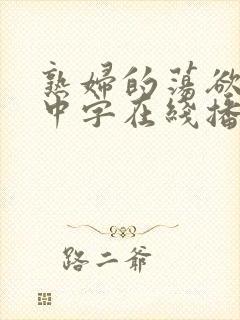 熟婦的蕩欲
中字在綫播
路二爺